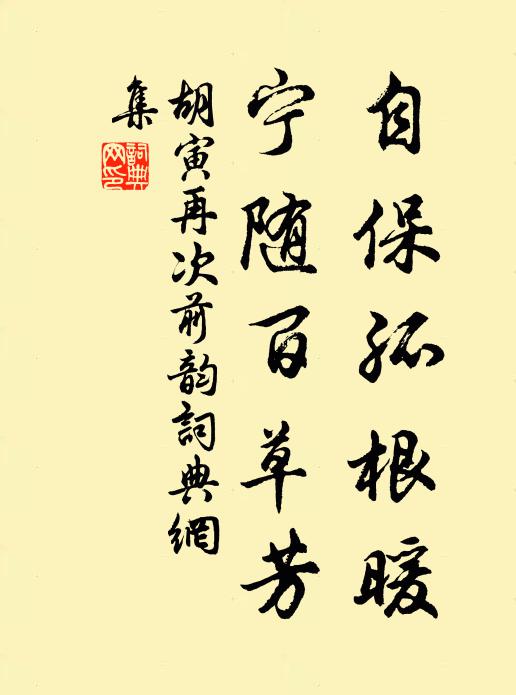 自保孤根暖
宁随百草芳
胡寅再次前韵詞典網
集
詞典
网印